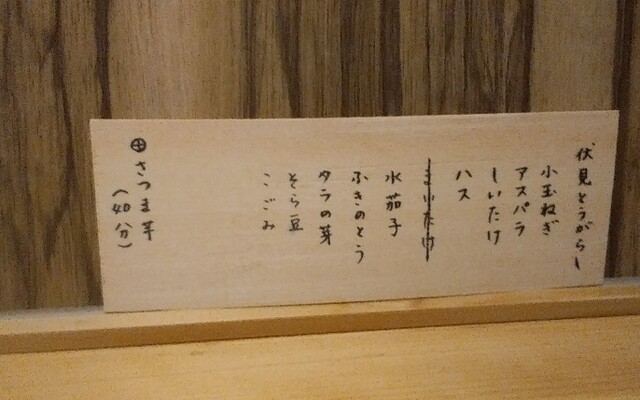 伏見とうがらし
小玉ねぎ
アスパラ
しいたけ
ハス
まいたけ
水茄子
ふきのとう
タラの芽
そら豆
こごみ
㊉さつま芋
(40分)